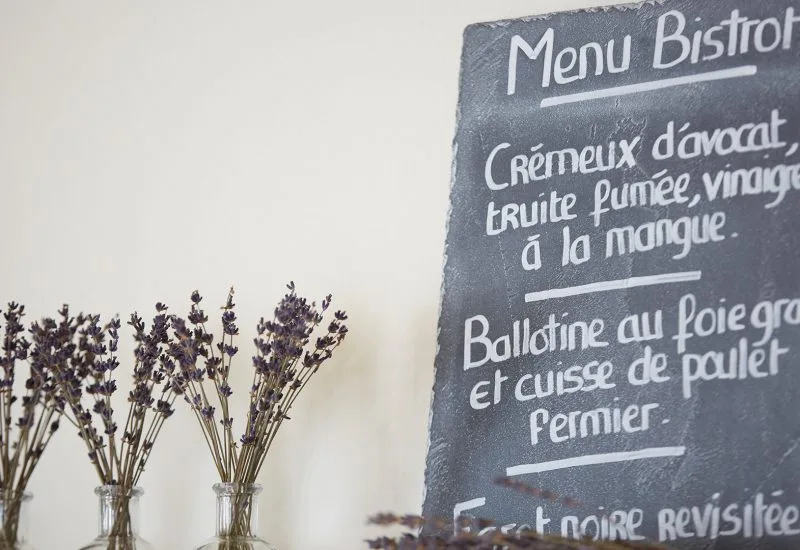 Menu Bistrot
Crémeux d'avocat,
truite fumée, vinaigre
à la mangue.
Ballotine au foie gra
et cuisse de poulet
fermier.
noire revisitée